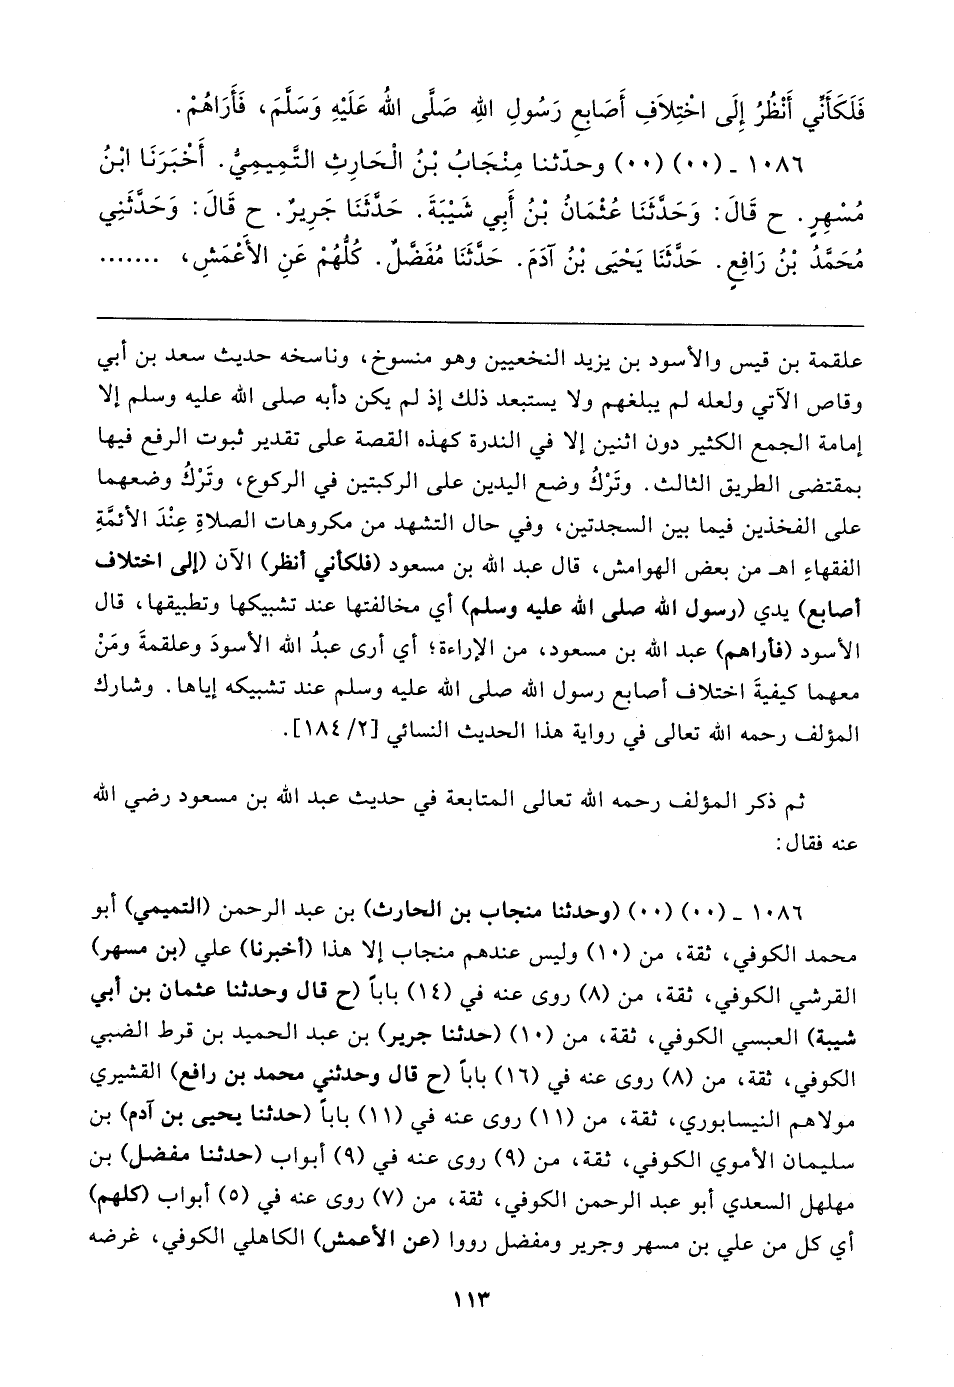 فَلَكَأَنِّي أَنْظُرُ إِلَى اخْتِلَافِ أَصَابِعِ رَسُولِ اللهِ صَلَّى اللهُ عَلَيْهِ وَسَلَّمَ، فَأَرَاهُمْ.
١٠٨٦ - (٠٠) (٠٠) وحدّثنا مِنْجَابُ بْنُ الْحَارِثِ التَّمِيمِيُّ. أَخْبَرَنَا ابْنُ
مُسْهِرٍ. ح قَالَ: وَحَدَّثَنَا عُثْمَانُ بْنُ أَبِي شَيْبَةَ. حَدَّثَنَا جَرِيرٌ. ح قَالَ: وَحَدَّثَنِي
مُحَمَّدُ بْنُ رَافِعٍ. حَدَّثَنَا يَحْيَى بْنُ آدَمَ. حَدَّثَنَا مُفَضَّلٌ. كُلُّهُمْ عَنِ الأَعْمَشِ، .......
علقمة بن قيس والأسود بن يزيد النخعيين وهو منسوخ، وناسخه حديث سعد بن أبي
وقاص الآتي ولعله لم يبلغهم ولا يستبعد ذلك إذ لم يكن دأبه صلى الله عليه وسلم إلا
إمامة الجمع الكثير دون اثنين إلا في الندرة كهذه القصة على تقدير ثبوت الرفع فيها
بمقتضى الطريق الثالث. وتَرْكُ وضع اليدين على الركبتين في الركوع، وتَرْكُ وضعهما
على الفخذين فيما بين السجدتين، وفي حال التشهد من مكروهات الصلاةِ عِنْدَ الأئمَّةِ
الفقهاءِ اهـ من بعض الهوامش، قال عبد الله بن مسعود (فلكأني أنظر) الآن (إلى اختلاف
أصابع) يدي (رسول الله صلى الله عليه وسلم) أي مخالفتها عند تشبيكها وتطبيقها، قال
الأسود (فأراهم) عبد الله بن مسعود، من الإراءة؛ أي أرى عبدُ الله الأسودَ وعلقمةَ ومَنْ
معهما كيفيةَ اختلاف أصابع رسول الله صلى الله عليه وسلم عند تشبيكه إياها. وشارك
المؤلف رحمه الله تعالى في رواية هذا الحديث النسائي [٢/ ١٨٤].
ثم ذكر المؤلف رحمه الله تعالى المتابعة في حديث عبد الله بن مسعود رضي الله
عنه فقال:
١٠٨٦ - (٠٠) (٠٠) (وحدثنا منجاب بن الحارث) بن عبد الرحمن (التميمي) أبو
محمد الكوفي، ثقة، من (١٠) وليس عندهم منجاب إلا هذا (أخبرنا) علي (بن مسهر)
القرشي الكوفي، ثقة، من (٨) روى عنه في (١٤) باباً (ح قال وحدثنا عثمان بن أبي
شيبة) العبسي الكوفي، ثقة، من (١٠) (حدثنا جرير) بن عبد الحميد بن قرط الضبي
الكوفي، ثقة، من (٨) روى عنه في (١٦) باباً (ح قال وحدثني محمد بن رافع) القشيري
مولاهم النيسابوري، ثقة، من (١١) روى عنه في (١١) باباً (حدثنا يحيى بن آدم) بن
سليمان الأموي الكوفي، ثقة، من (٩) روى عنه في (٩) أبواب (حدثنا مفضل) بن
مهلهل السعدي أبو عبد الرحمن الكوفي، ثقة، من (٧) روى عنه في (٥) أبواب (كلهم)
أي كل من علي بن مسهر وجرير ومفضل رووا (عن الأعمش) الكاهلي الكوفي، غرضه
١١٣